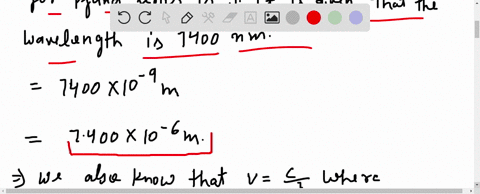 that the
wavelength is 7400 nm.
= 7400 × 10⁻⁹ m
= 7.400 × 10⁻⁶ m.
⇒ we also know that ν = c/λ where